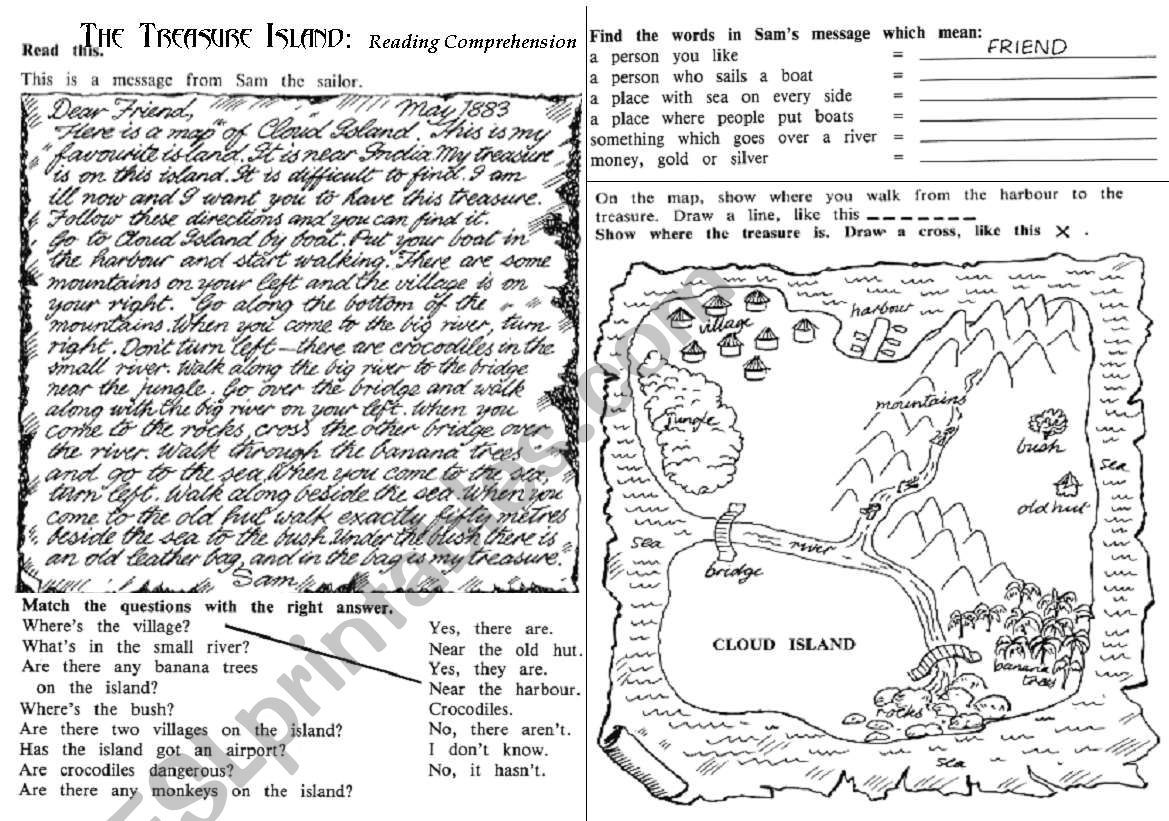 THE TREASURE ISLAND: Reading Comprehension
Read this.
This is a message from Sam the sailor.
Dear Friend, May 1883
Here is a map of Cloud Island. This is my
favourite island. It is near India. My treasure
is on this island. It is difficult to find. I am
ill now and I want you to have this treasure.
Follow these directions and you can find it.
Go to Cloud Island by boat. Put your boat in
the harbour and start walking. There are some
mountains on your left and the village is on
your right. Go along the bottom of the
mountains. When you come to the big river, turn
right. Don't turn left – there are crocodiles in the
small river. Walk along the big river to the bridge
near the jungle. Go over the bridge and walk
along with the big river on your left. When you
come to the rocks, cross the other bridge over
the river. Walk through the banana trees
and go to the sea. When you come to the sea,
turn left. Walk along beside the sea. When you
come to the old hut walk exactly fifty metres
beside the sea to the bush. Under the bush there is
an old leather bag, and in the bag is my treasure.
Sam
Match the questions with the right answer.
Where's the village?
What's in the small river?
Are there any banana trees
on the island?
Where's the bush?
Are there two villages on the island?
Has the island got an airport?
Are crocodiles dangerous?
Are there any monkeys on the island?
Yes, there are.
Near the old hut.
Yes, they are.
Near the harbour.
Crocodiles.
No, there aren't.
I don't know.
No, it hasn't.
Find the words in Sam's message which mean:
a person you like = FRIEND
a person who sails a boat =
a place with sea on every side =
a place where people put boats =
something which goes over a river =
money, gold or silver =
On the map, show where you walk from the harbour to the
treasure. Draw a line, like this
Show where the treasure is. Draw a cross, like this X .
harbour
village
mountains
jungle
bush
sea
old hut
sea
river
bridge
CLOUD ISLAND
banana
trees
rocks
sea
ESLprintables.com